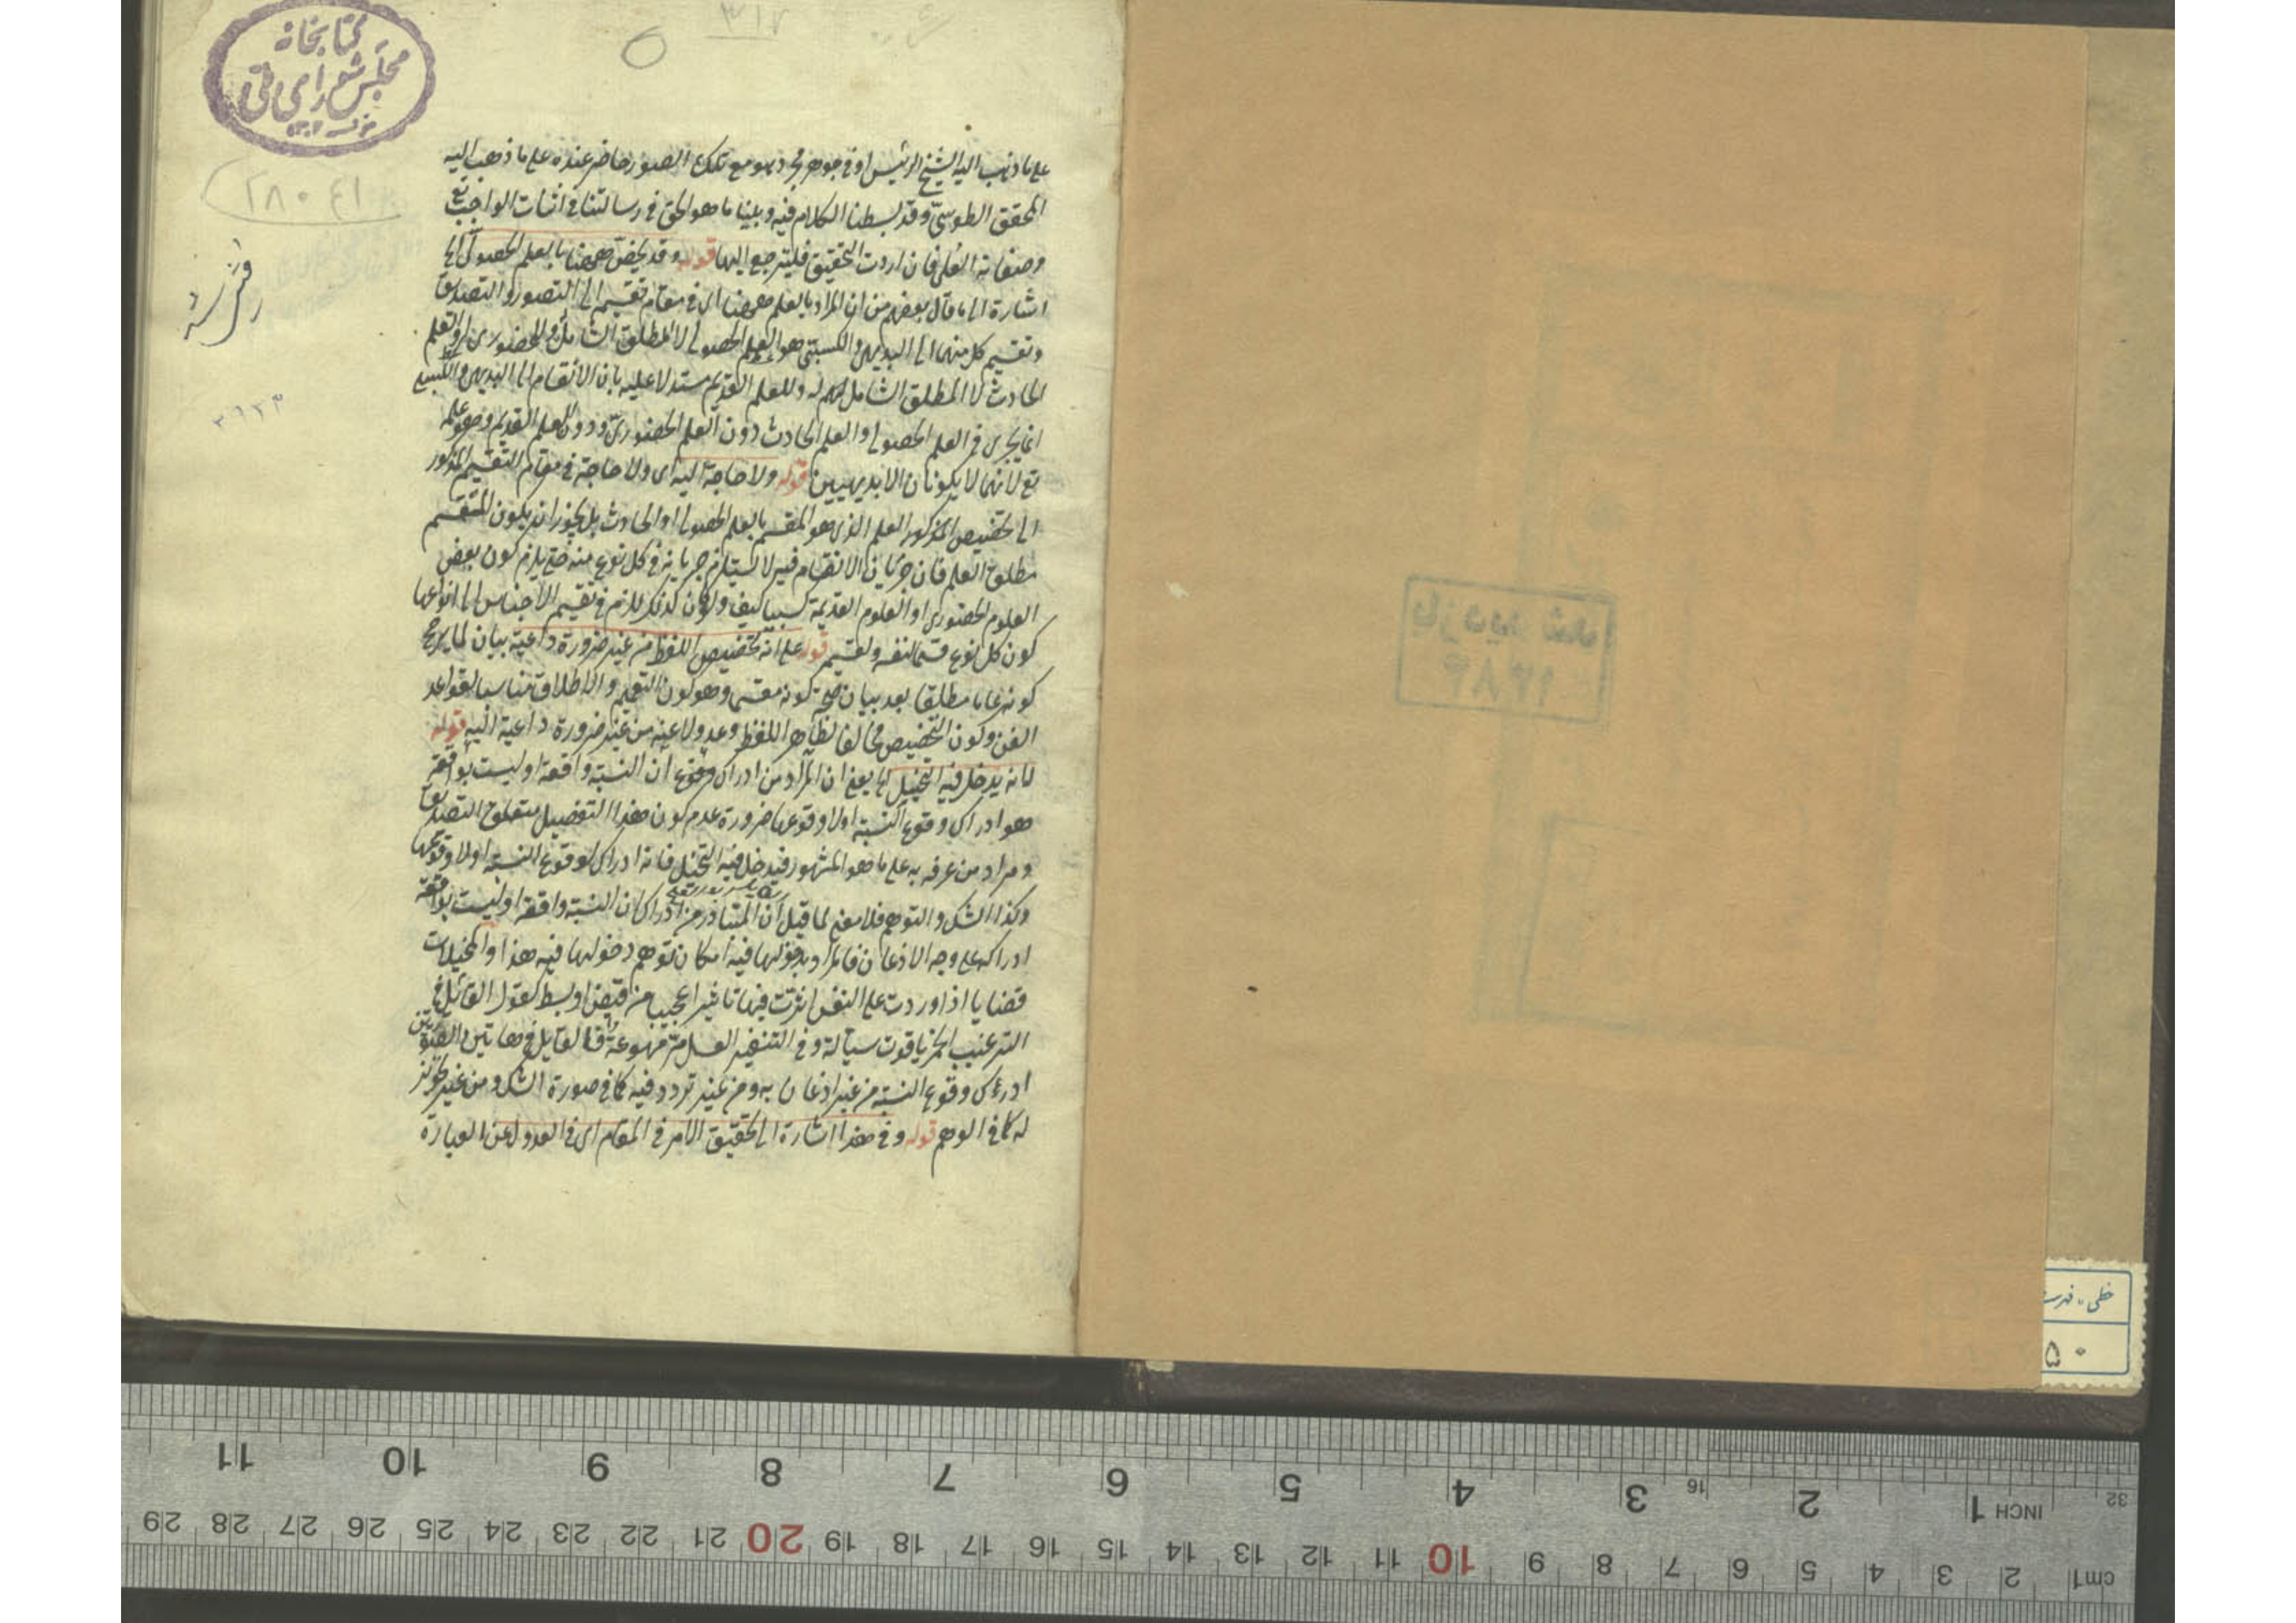 کتابخانه
مجلس شورای ملی
على ما ذهب اليه الشيخ الرئيس او في جوهر مجرد هو مع تلك الصور حاضر عنده على ما ذهب اليه
المحقق الطوسي وقد بسطنا الكلام فيه وبينا ما هو الحق في رسالتنا في اثبات الواجب تع
وصفاته العلى فان اردت التحقيق فليرجع اليها قوله وقد يخص ههنا بالعلم الحصولى الخ
اشارة الى ما قال بعضهم من ان المراد بالعلم ههنا اى فى مقام تقسيمه الى التصور والتصديق
وتقسيم كل منهما الى البديهى والكسبى هو العلم الحصولى لا المطلق الشامل له وللحضورى او العلم
الحادث لا المطلق الشامل له وللعلم القديم مستدلا عليه بان الانقسام الى البديهى والكسبى
انما يجرى فى العلم الحصولى والعلم الحادث دون العلم الحضورى ودون العلم القديم وهو علمه
تع لانهما لا يكونان الا بديهيين قوله ولا حاجة اليه اى ولا حاجة فى مقام التقسيم المذكور
الى تخصيص المذكور العلم الذى هو المقسم بالعلم الحصولى او الحادث بل يجوز ان يكون المقسم
مطلق العلم فان جريان الانقسام فيه لا يستلزم جريانه فى كل نوع منه حتى يلزم كون بعض
العلوم الحضورى او العلوم القديمة كسبيا كيف ولو كان كذلك للزم فى تقسيم الاجناس الى انواعها
كون كل نوع قسما لنفسه ولقسيمه قوله على انه تخصيص اللفظ من غير ضرورة داعية بيان لما يرجح
كونه عاما مطلقا بعد بيان صحة كونه مقسما وهو كون التعميم والاطلاق مناسبا لقواعد
الفن وكون التخصيص مخالفا لظاهر اللفظ وعدولا عنه من غير ضرورة داعية اليه قوله
لانه يدخل فيه التخييل الخ يعنى ان المراد من ادراك وقوع ان النسبة واقعة او ليست بواقعة
هو ادراك وقوع النسبة او لا وقوعها ضرورة عدم كون هذا التفصيل متعلق التصديق
ومراد من عرفه به على ما هو المشهور فيدخل فيه التخيل فانه ادراك لوقوع النسبة او لا وقوعها
وكذا الشك والتوهم فلا معنى لما قيل ان المتبادر من ادراك ان النسبة واقعة او ليست بواقعة
ادراكه على وجه الاذعان فالمراد بدخولها فيه امكان توهم دخولها فيه هذا والمخيلات
قضايا اذا وردت على النفس اثرت فيها تاثيرا عجيبا من قبض او بسط كقول القائل فى
الترغيب الخمر ياقوت سيالة وفى التنفير العسل مرة مهوعة فالقايل فى هاتين الصورتين
ادرك وقوع النسبة من غير اذعان به ومن غير تردد فيه كما فى صورة الشك ومن غير تجويز
له كما فى الوهم قوله وفى هذا اشارة الى تحقيق الامر فى المقام اى فى العدول عن العبارة
٣١٧
۲۸۰٤۱
بازدید شد
۱۳۸۴
خطی - فهرست
۵۰
11 10 9 8 7 6 5 4 3 16 2 1 INCH 32
29 28 27 26 25 24 23 22 21 20 19 18 17 16 15 14 13 12 11 10 9 8 7 6 5 4 3 2 1 cm